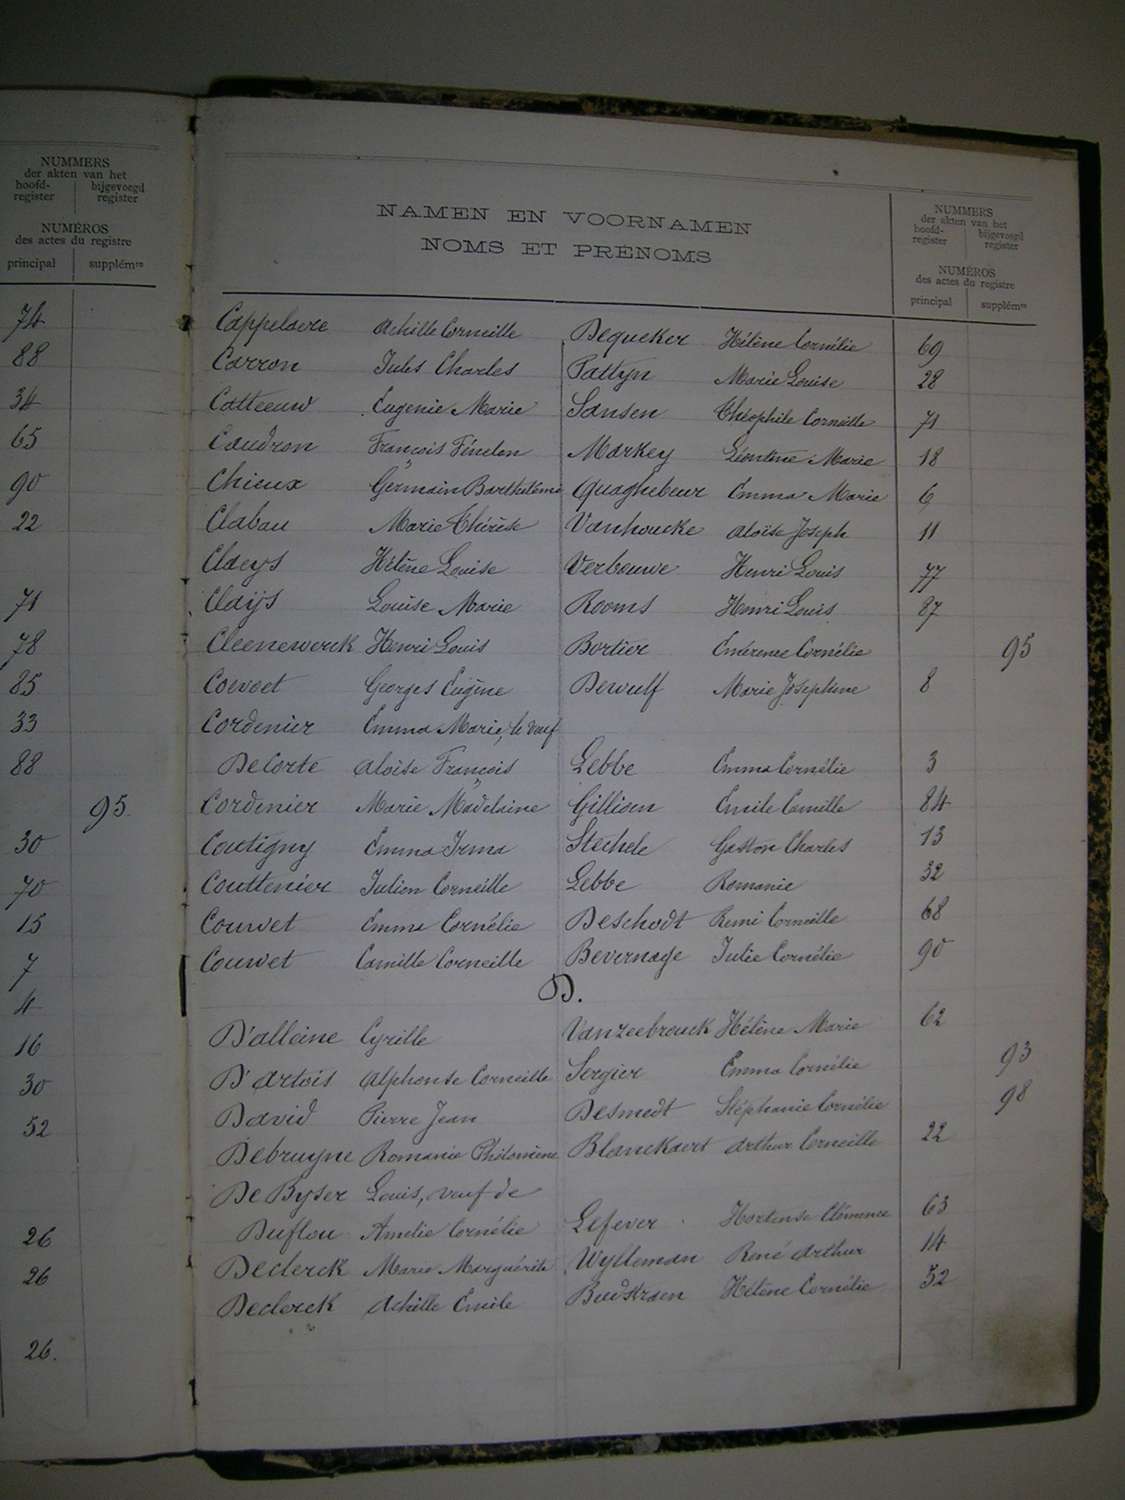 NUMMERS
der akten van het
hoofd-register bijgevoegd register
NUMÉROS
des actes du registre
principal supplémre
74
88
34
65
90
22
71
78
85
33
88
95.
30
70
15
7
4
16
30
52
26
26
26.
NAMEN EN VOORNAMEN
NOMS ET PRÉNOMS
NUMMERS
der akten van het
hoofd-register bijgevoegd register
NUMÉROS
des actes du registre
principal supplémre
Cappelaere Achille Corneille Dequeker Hélène Cornélie 69
Carron Jules Charles Pattyn Marie Louise 28
Catteeuw Eugenie Marie Sansen Théophile Corneille 71
Caudron François Fénelon Markey Léontine Marie 18
Chieux Germain Barthélémi Quaghebeur Emma Marie 6
Clabau Marie Thérèse Vanhoucke Aloïse Joseph 11
Claeys Hélène Louise Verbouwe Henri Louis 77
Claÿs Louise Marie Rooms Henri Louis 87
Cleenewerck Henri Louis Bortier Emérence Cornélie 95
Coevoet Georges Eugène Dewulf Marie Josephine 8
Cordenier Emma Marie, le veuf
DeCorte Aloïse François Lebbe Emma Cornélie 3
Cordenier Marie Madelaine Gillioen Emile Camille 84
Coutigny Emma Irma Stechele Gaston Charles 13
Couttenier Julien Corneille Lebbe Romanie 32
Couvet Emma Cornélie Deschodt Remi Corneille 68
Couvet Camille Corneille Bevernage Julie Cornélie 90
D.
D'alleine Cyrille Vanzeebrouck Hélène Marie 62
D'artois Alphonse Corneille Sergier Emma Cornélie 93
David Pierre Jean Desmedt Stéphanie Cornélie 98
Debruyne Romanie Philomène Blanckaert Arthur Corneille 22
DeByser Louis, veuf de
Duflou Amelie Cornélie Lefever Hortense Clémence 63
Declerck Marie Marguérite Wylleman René Arthur 14
Declerck Achille Emile Hélène Cornélie 52